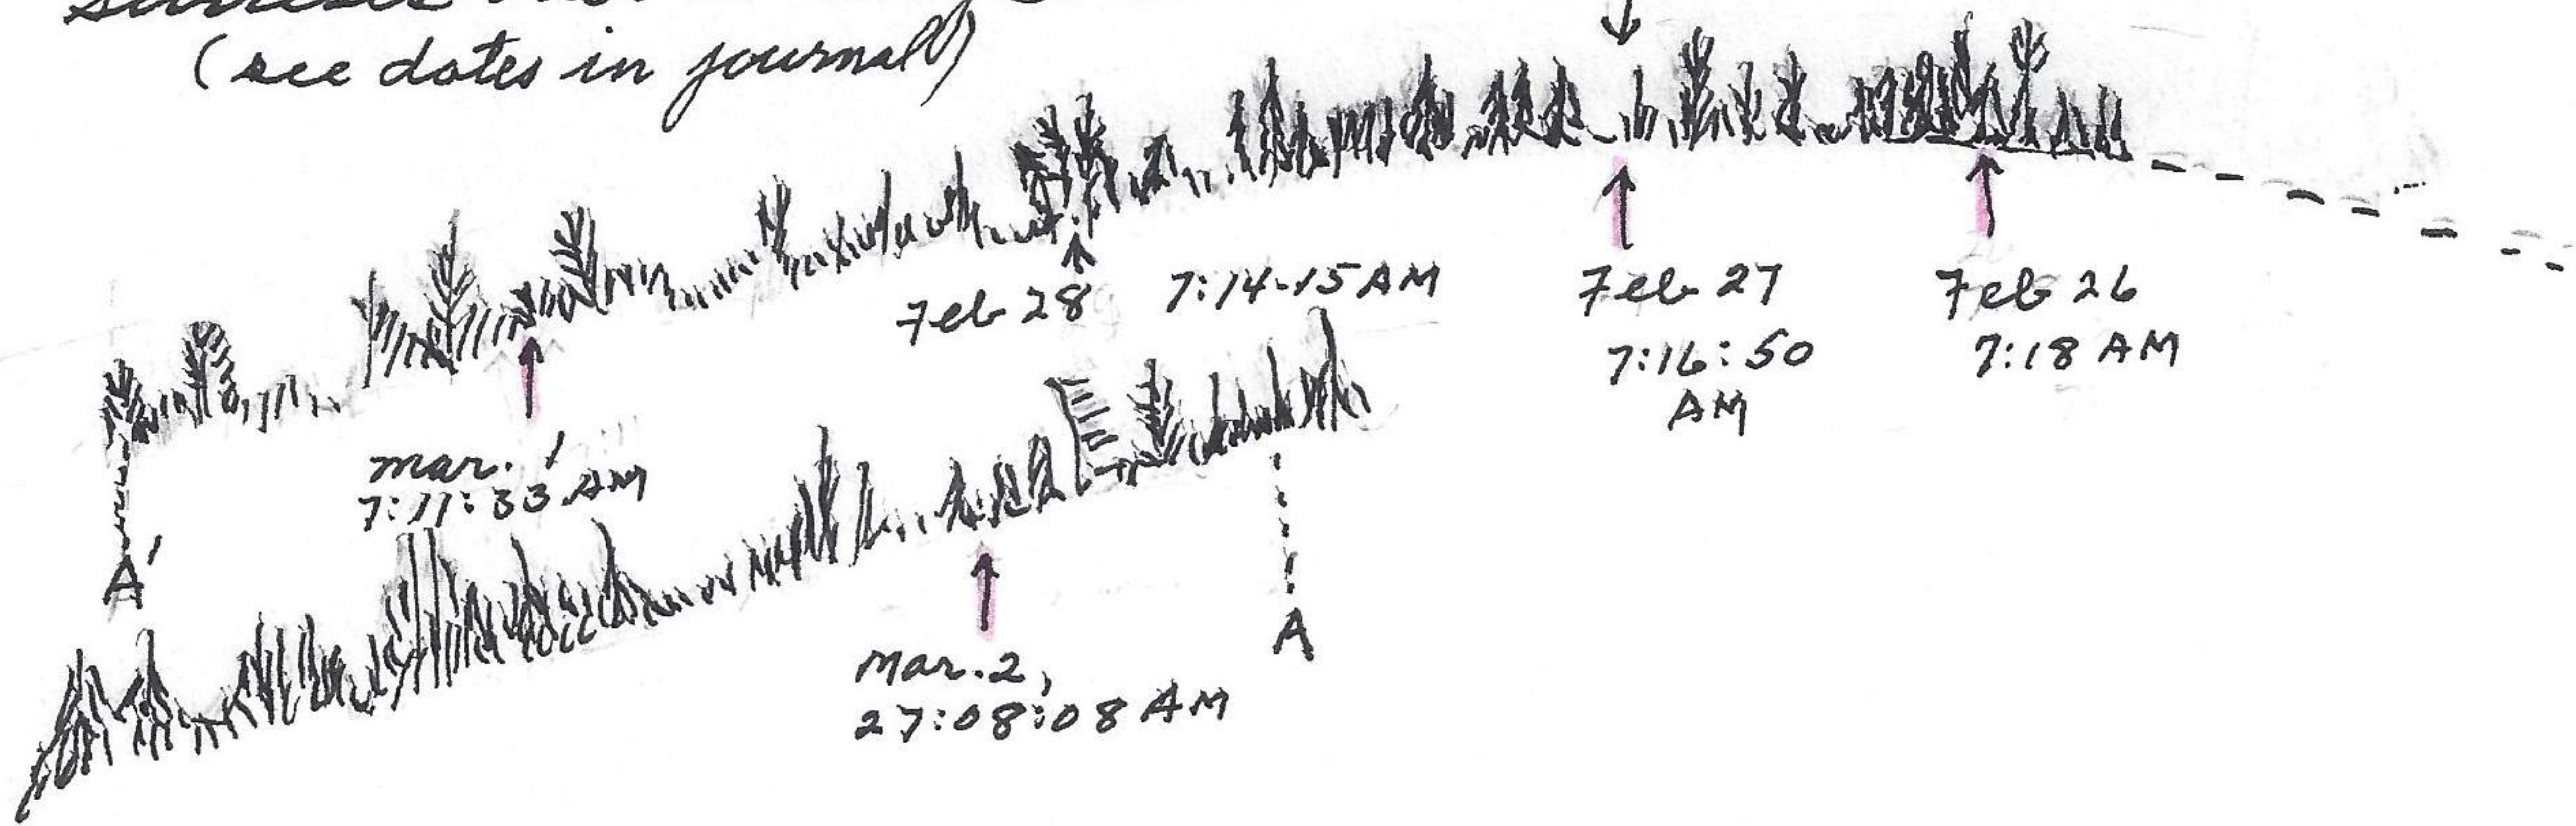 sunrises
(see dates in journal)
Feb 28 7:14-15 AM
Feb 27
7:16:50
AM
Feb 26
7:18 AM
Mar. 1
7:11:33 AM
A'
Mar. 2,
27:08:08 AM
A